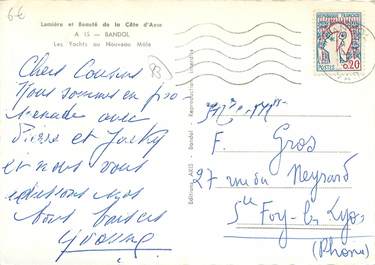 6€
Lumière et Beauté de la Côte d'Azur
A 15 - BANDOL
Les Yachts au Nouveau Môle
Chers Cousins
Nous sommes en pro
menade avec
Pierre et Jacky
et nous vous
adressons nos
bons baisers
Yvonne
B
Editions AKO - Bandol - Reproduction interdite
POSTES
0,20
F. Gros
27 rue du Neyrard
Ste Foy-les Lyon
(Rhône)